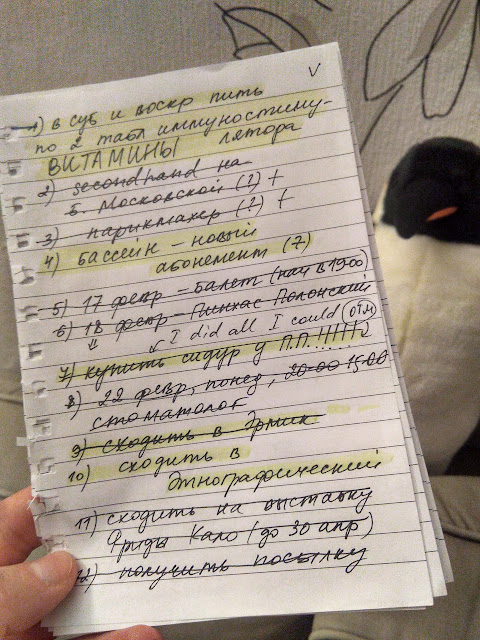 V
1) в суб и воскр пить
по 2 табл иммуностиму-
лятора
ВИТАМИНЫ
2) secondhand на
Б. Московской (?) +
3) парикмахер (?) +
4) бассейн - новый
абонемент (7)
5) 17 февр - балет (нач в 19-00)
6) 18 февр - Пинхас Полонский
⇓ ↙ I did all I could (ОТМ)
7) купить сидур у П.П.!!!!!!
8) 22 февр, понед, 20-00 15-00
стоматолог
9) сходить в Эрмик
10) сходить в
Этнографический
11) сходить на выставку
Фриды Кало (до 30 апр)
12) получить посылку